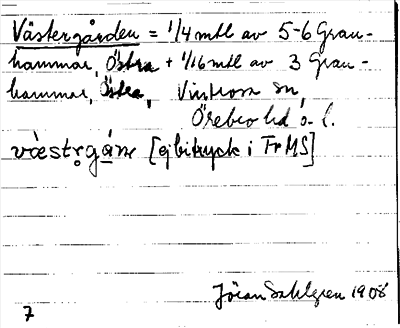 Västergården = 1/4 mtl av 5-6 Gran-
hammar, Östra + 1/16 mtl av 3 Gran-
hammar, Östra, Vintrosa sn,
Örebro hd, ö. l.
[ej bitryck i FrMS]
Jöran Sahlgren 1908
7